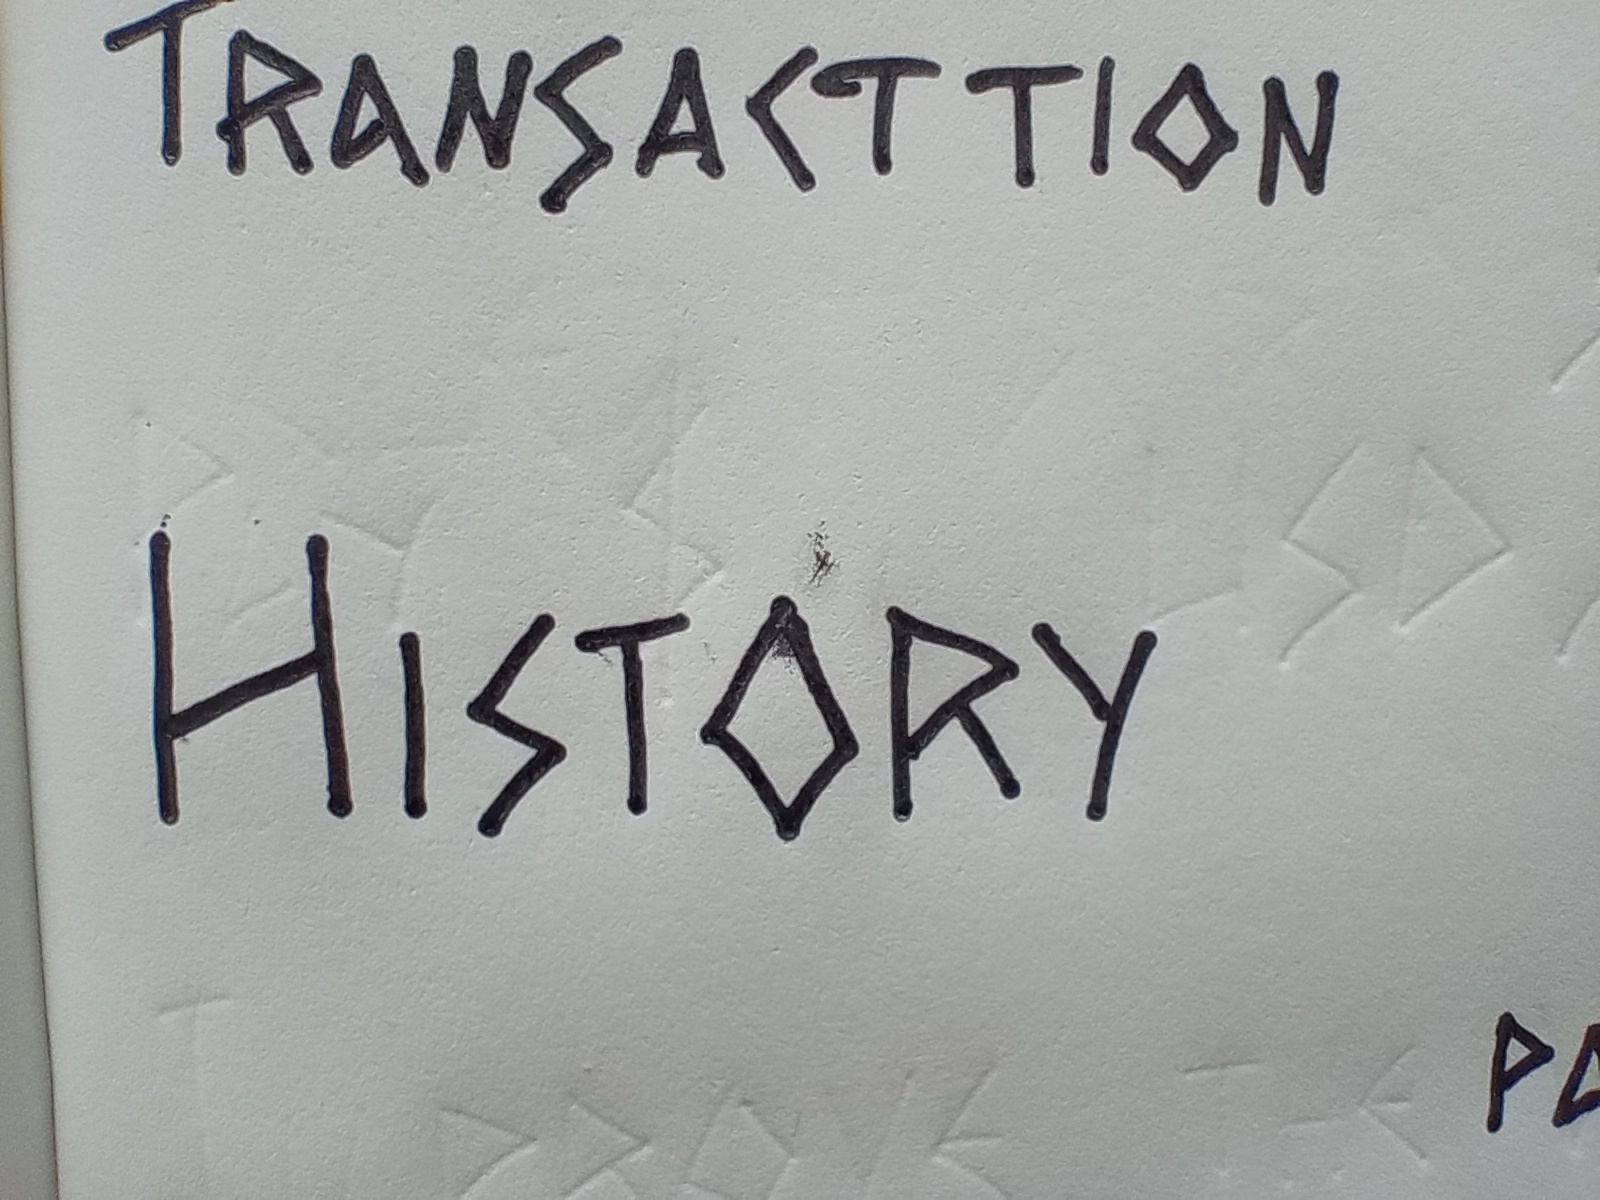 TRANSACTTION
HISTORY